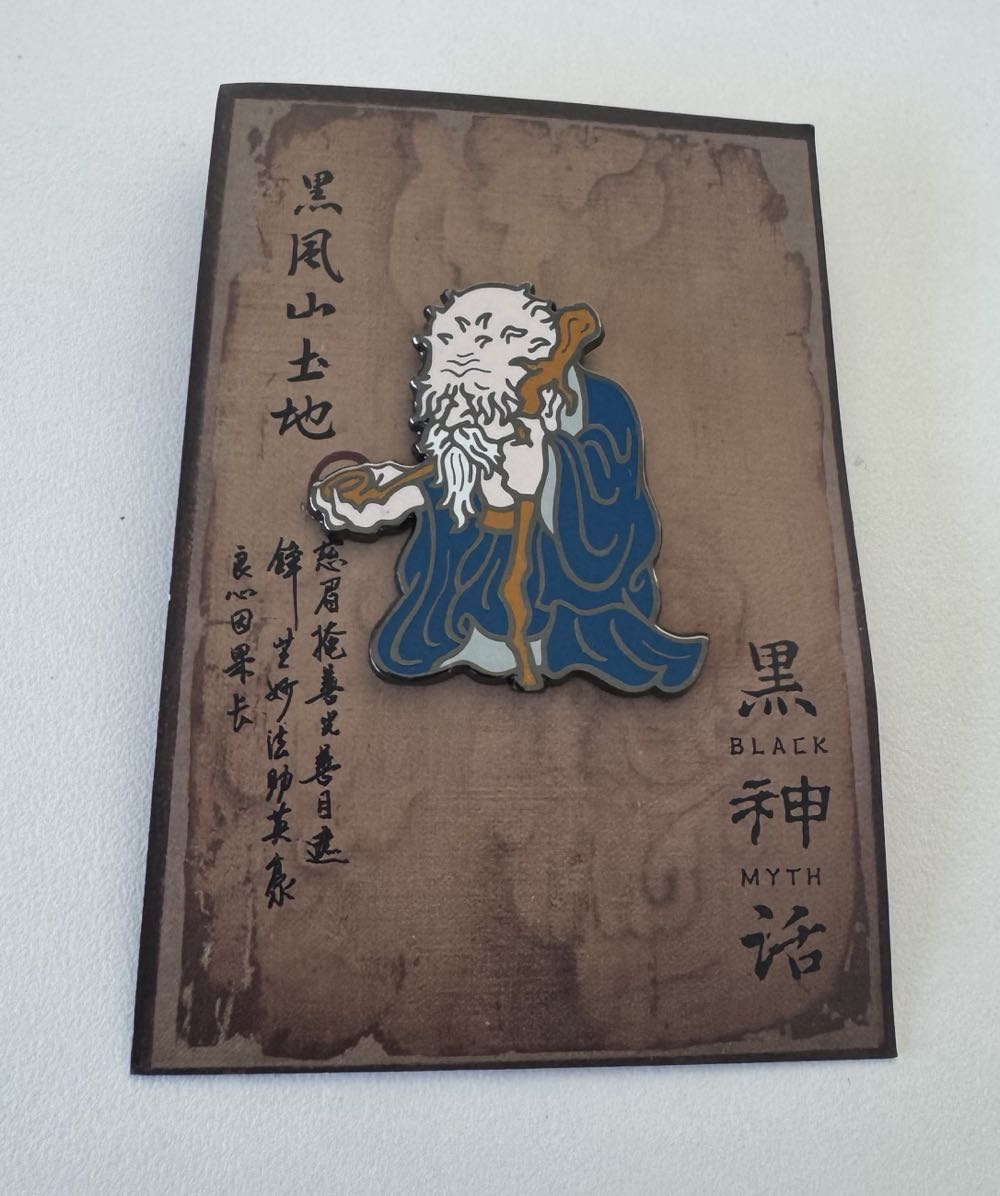 黑风山土地
慈眉掩善光善目遮
锋芒妙法助英豪
良心因果长
黑
BLACK
神
MYTH
话